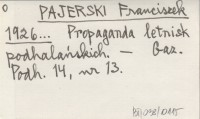 PAJERSKI Franciszek
1926... Propaganda letnisk
podhalańskich. – Gaz.
Podh. 14, nr 13.